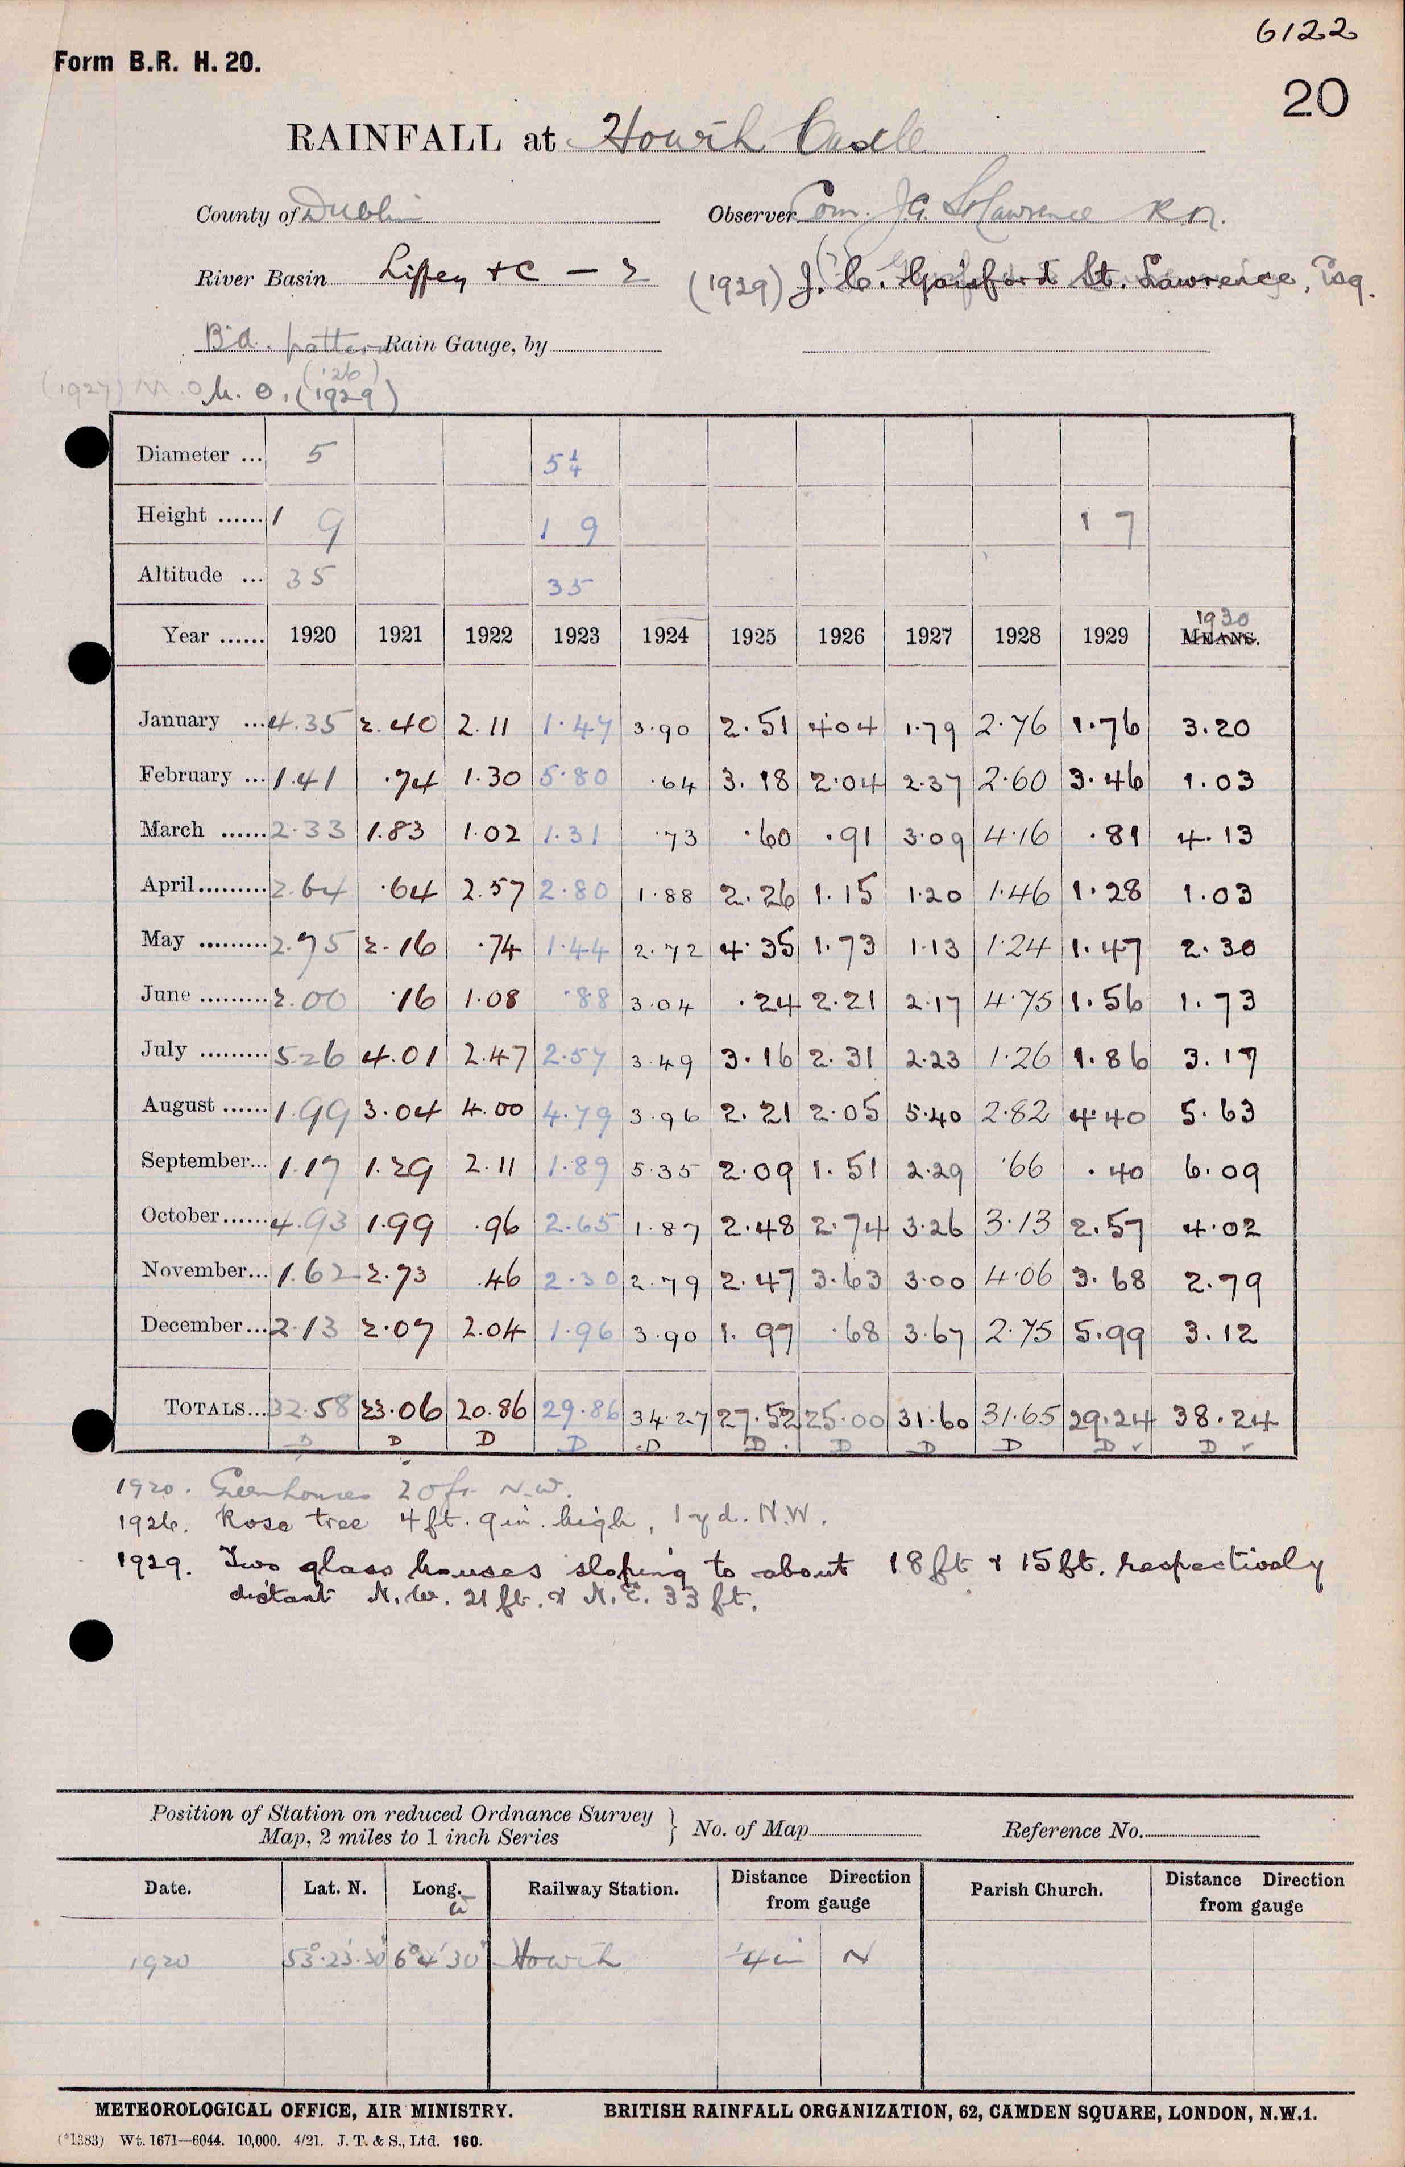 6122
Form B.R. H. 20.
20
RAINFALL at Howth Castle
County of Dublin Observer Com. J.G. St Lawrence R.N.
River Basin Liffey &C — 2 (1929) J. C. Gaisford St. Lawrence, Esq.
Bd. pattern Rain Gauge, by
(1927) M.O. M.O. ('26) (1929)
Diameter ... 5 5¼
Height ...... 1 9 1 9 1 7
Altitude ... 35 35
1930
Year ...... 1920 1921 1922 1923 1924 1925 1926 1927 1928 1929 MEANS.
January ... 4.35 2.40 2.11 1.47 3.90 2.51 4.04 1.79 2.76 1.76 3.20
February ... 1.41 .74 1.30 5.80 .64 3.18 2.04 2.37 2.60 3.46 1.03
March ...... 2.33 1.83 1.02 1.31 .73 .60 .91 3.09 4.16 .81 4.13
April ......... 2.64 .64 2.57 2.80 1.88 2.26 1.15 1.20 1.46 1.28 1.03
May ......... 2.75 2.16 .74 1.44 2.72 4.35 1.73 1.13 1.24 1.47 2.30
June ......... 2.00 .16 1.08 .88 3.04 .24 2.21 2.17 4.75 1.56 1.73
July ......... 5.26 4.01 2.47 2.57 3.49 3.16 2.31 2.23 1.26 1.86 3.17
August ...... 1.99 3.04 4.00 4.79 3.96 2.21 2.05 5.40 2.82 4.40 5.63
September... 1.17 1.29 2.11 1.89 5.35 2.09 1.51 2.29 .66 .40 6.09
October...... 4.93 1.99 .96 2.65 1.87 2.48 2.74 3.26 3.13 2.57 4.02
November... 1.62 2.73 .46 2.30 2.79 2.47 3.63 3.00 4.06 3.68 2.79
December ... 2.13 2.07 2.04 1.96 3.90 1.97 .68 3.67 2.75 5.99 3.12
TOTALS... 32.58 23.06 20.86 29.86 34.27 27.52 25.00 31.60 31.65 29.24 38.24
D D D D D D D D D D ✓ D ✓
1920. Greenhouses 20ft. N.W.
1926. Rose tree 4ft. 9in. high, 1yd. N.W.
1929. Two glass houses sloping to about 18ft & 15ft. respectively
distant N.W. 21ft. & N.E. 33ft.
Position of Station on reduced Ordnance Survey
Map, 2 miles to 1 inch Series } No. of Map Reference No.
Date. Lat. N. Long. W Railway Station. Distance Direction from gauge Parish Church. Distance Direction from gauge
1920 53°.23'.30" 6°4'30" Howth ¼m N
METEOROLOGICAL OFFICE, AIR MINISTRY. BRITISH RAINFALL ORGANIZATION, 62, CAMDEN SQUARE, LONDON, N.W.1.
(*1383) Wt. 1671—6044. 10,000. 4/21. J. T. & S., Ltd. 160.